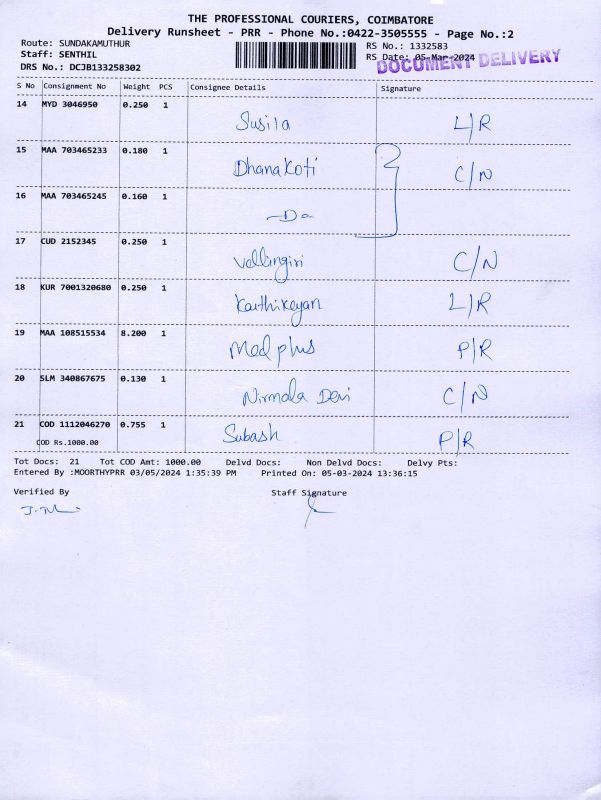 THE PROFESSIONAL COURIERS, COIMBATORE
Delivery Runsheet - PRR - Phone No.:0422-3505555 - Page No.:2
Route: SUNDAKAMUTHUR
RS No.: 1332583
Staff: SENTHIL
RS Date: 05-Mar-2024
DOCUMENT DELIVERY
DRS No.: DCJB133258302
S No Consignment No Weight PCS Consignee Details Signature
14 MYD 3046950 0.250 1
Susila L/R
15 MAA 703465233 0.180 1
Dhanakoti C/N
16 MAA 703465245 0.160 1
-Do
17 CUD 2152345 0.250 1
Vellingiri C/N
18 KUR 7001320680 0.250 1
Karthikeyan L/R
19 MAA 108515534 8.200 1
Med plus P/R
20 SLM 340867675 0.130 1
Nirmala Devi C/N
21 COD 1112046270 0.755 1
Subash P/R
COD Rs.1000.00
Tot Docs: 21 Tot COD Amt: 1000.00 Delvd Docs: Non Delvd Docs: Delvy Pts:
Entered By :MOORTHYPRR 03/05/2024 1:35:39 PM Printed On: 05-03-2024 13:36:15
Verified By Staff Signature